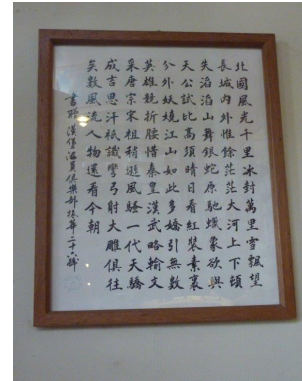 北國風光千里冰封萬里雪飄望
長城內外惟餘茫茫大河上下頓
失滔滔山舞銀蛇原馳蠟象欲與
天公試比高須晴日看紅裝素裹
分外妖嬈江山如此多嬌引無數
英雄競折腰惜秦皇漢武略輸文
采唐宗宋祖稍遜風騷一代天驕
成吉思汗祇識彎弓射大雕俱往
矣數風流人物還看今朝
海員俱樂部振華二十六號